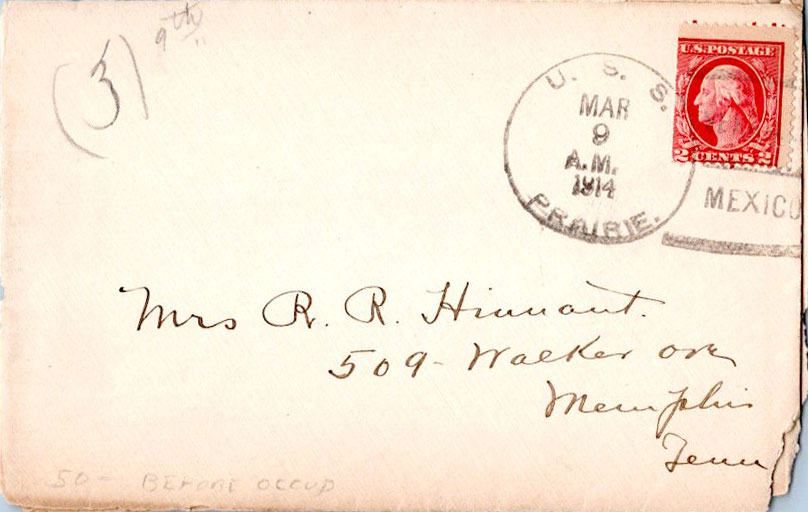 (3)
9th
U. S. S.
MAR
9
A.M.
1914
PRAIRIE.
U.S. POSTAGE
2 CENTS 2
MEXICO
Mrs R. R. Hinnant.
509 - Walker ave
Memphis
Tenn
50 - BEFORE OCCUP